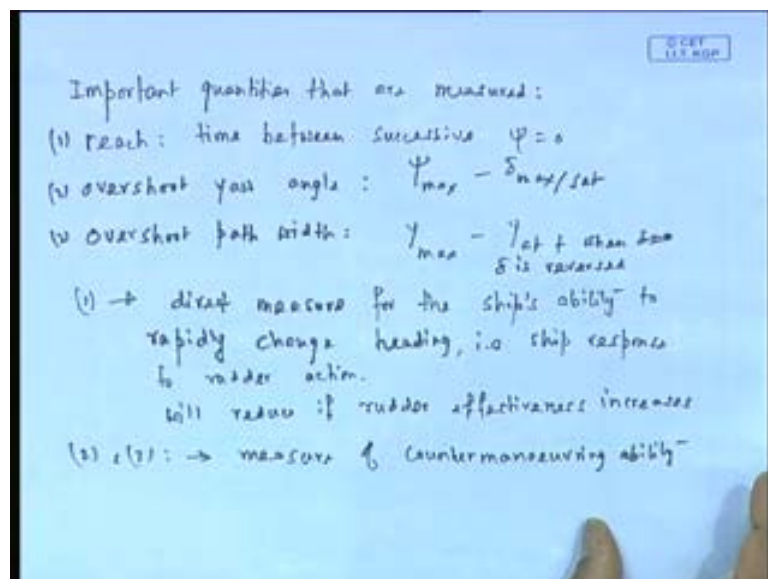 © CET
I.I.T. KGP
Important quantities that are measured:
(1) reach: time between successive ψ = 0
(2) overshoot yaw angle: ψmax - δmax/set
(3) overshoot path width: ymax - y at t when
δ is reversed
(1) → direct measure for the ship's ability to
rapidly change heading, i.e ship response
to rudder action.
will reduce if rudder effectiveness increases
(2), (3): → measure of countermanoeuvring ability